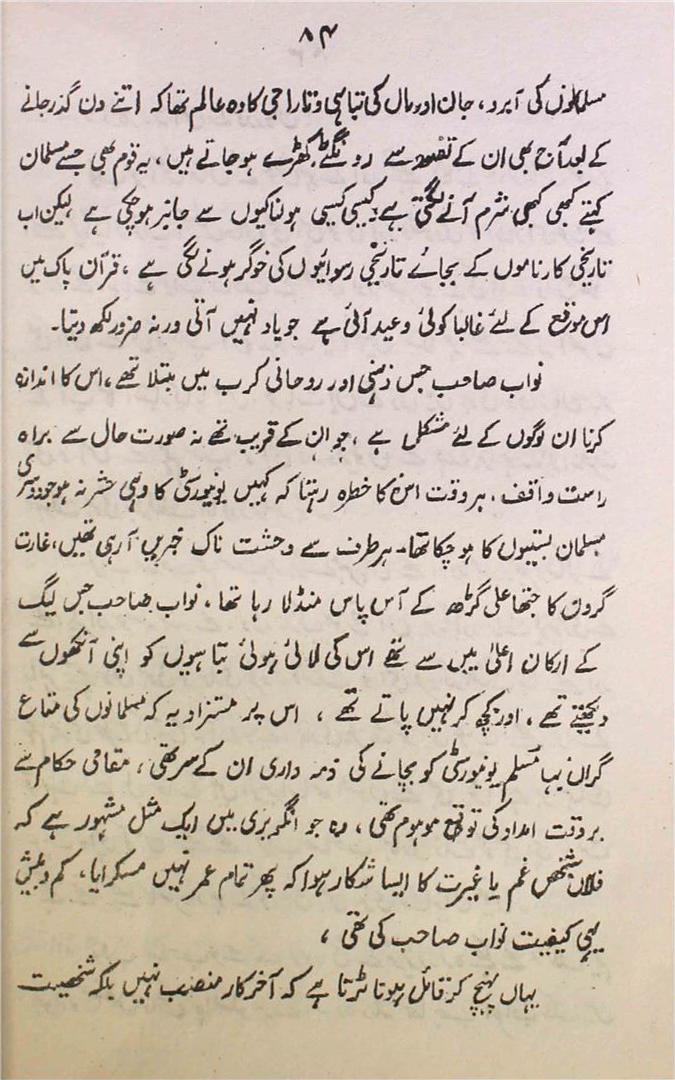 ۸۴
مسلمانوں کی آبرو، جان اور مال کی تباہی و تاراجی کا وہ عالم تھا کہ اتنے دن گذر جانے
کے بعد آج بھی ان کے تصور سے رونگٹے کھڑے ہو جاتے ہیں، یہ قوم بھی جسے مسلمان
کہتے کبھی کبھی شرم آنے لگتی ہے، کیسی کیسی ہولناکیوں سے جانبر ہو چکی ہے لیکن اب
تاریخی کارناموں کے بجائے تاریخی رسوائیوں کی خوگر ہونے لگی ہے، قرآن پاک میں
اس موقع کے لئے غالباً کوئی وعید آئی ہے جو یاد نہیں آتی ورنہ ضرور لکھ دیتا۔
نواب صاحب جس ذہنی اور روحانی کرب میں مبتلا تھے، اس کا اندازہ
کرنا ان لوگوں کے لئے مشکل ہے، جو ان کے قریب تھے نہ صورت حال سے براہ
راست واقف، ہر وقت اس کا خطرہ رہتا کہ کہیں یونیورسٹی کا وہی حشر نہ ہو جو دوسری
مسلمان بستیوں کا ہو چکا تھا۔ ہر طرف سے وحشت ناک خبریں آ رہی تھیں، غارت
گروں کا جتھا علی گڑھ کے آس پاس منڈلا رہا تھا، نواب صاحب جس لیگ
کے ارکان اعلیٰ میں سے تھے اس کی لائی ہوئی تباہیوں کو اپنی آنکھوں سے
دیکھتے تھے، اور کچھ کر نہیں پاتے تھے، اس پر مستزاد یہ کہ مسلمانوں کی متاع
گراں بہا مسلم یونیورسٹی کو بچانے کی ذمہ داری ان کے سر تھی، مقامی حکام سے
بروقت امداد کی توقع موہوم تھی، وہ جو انگریزی میں ایک مثل مشہور ہے کہ
فلاں شخص غم یا غیرت کا ایسا شکار ہوا کہ پھر تمام عمر نہیں مسکرایا، کم و بیش
یہی کیفیت نواب صاحب کی تھی،
یہاں پہنچ کر قائل ہونا پڑتا ہے کہ آخرکار منصب نہیں بلکہ شخصیت